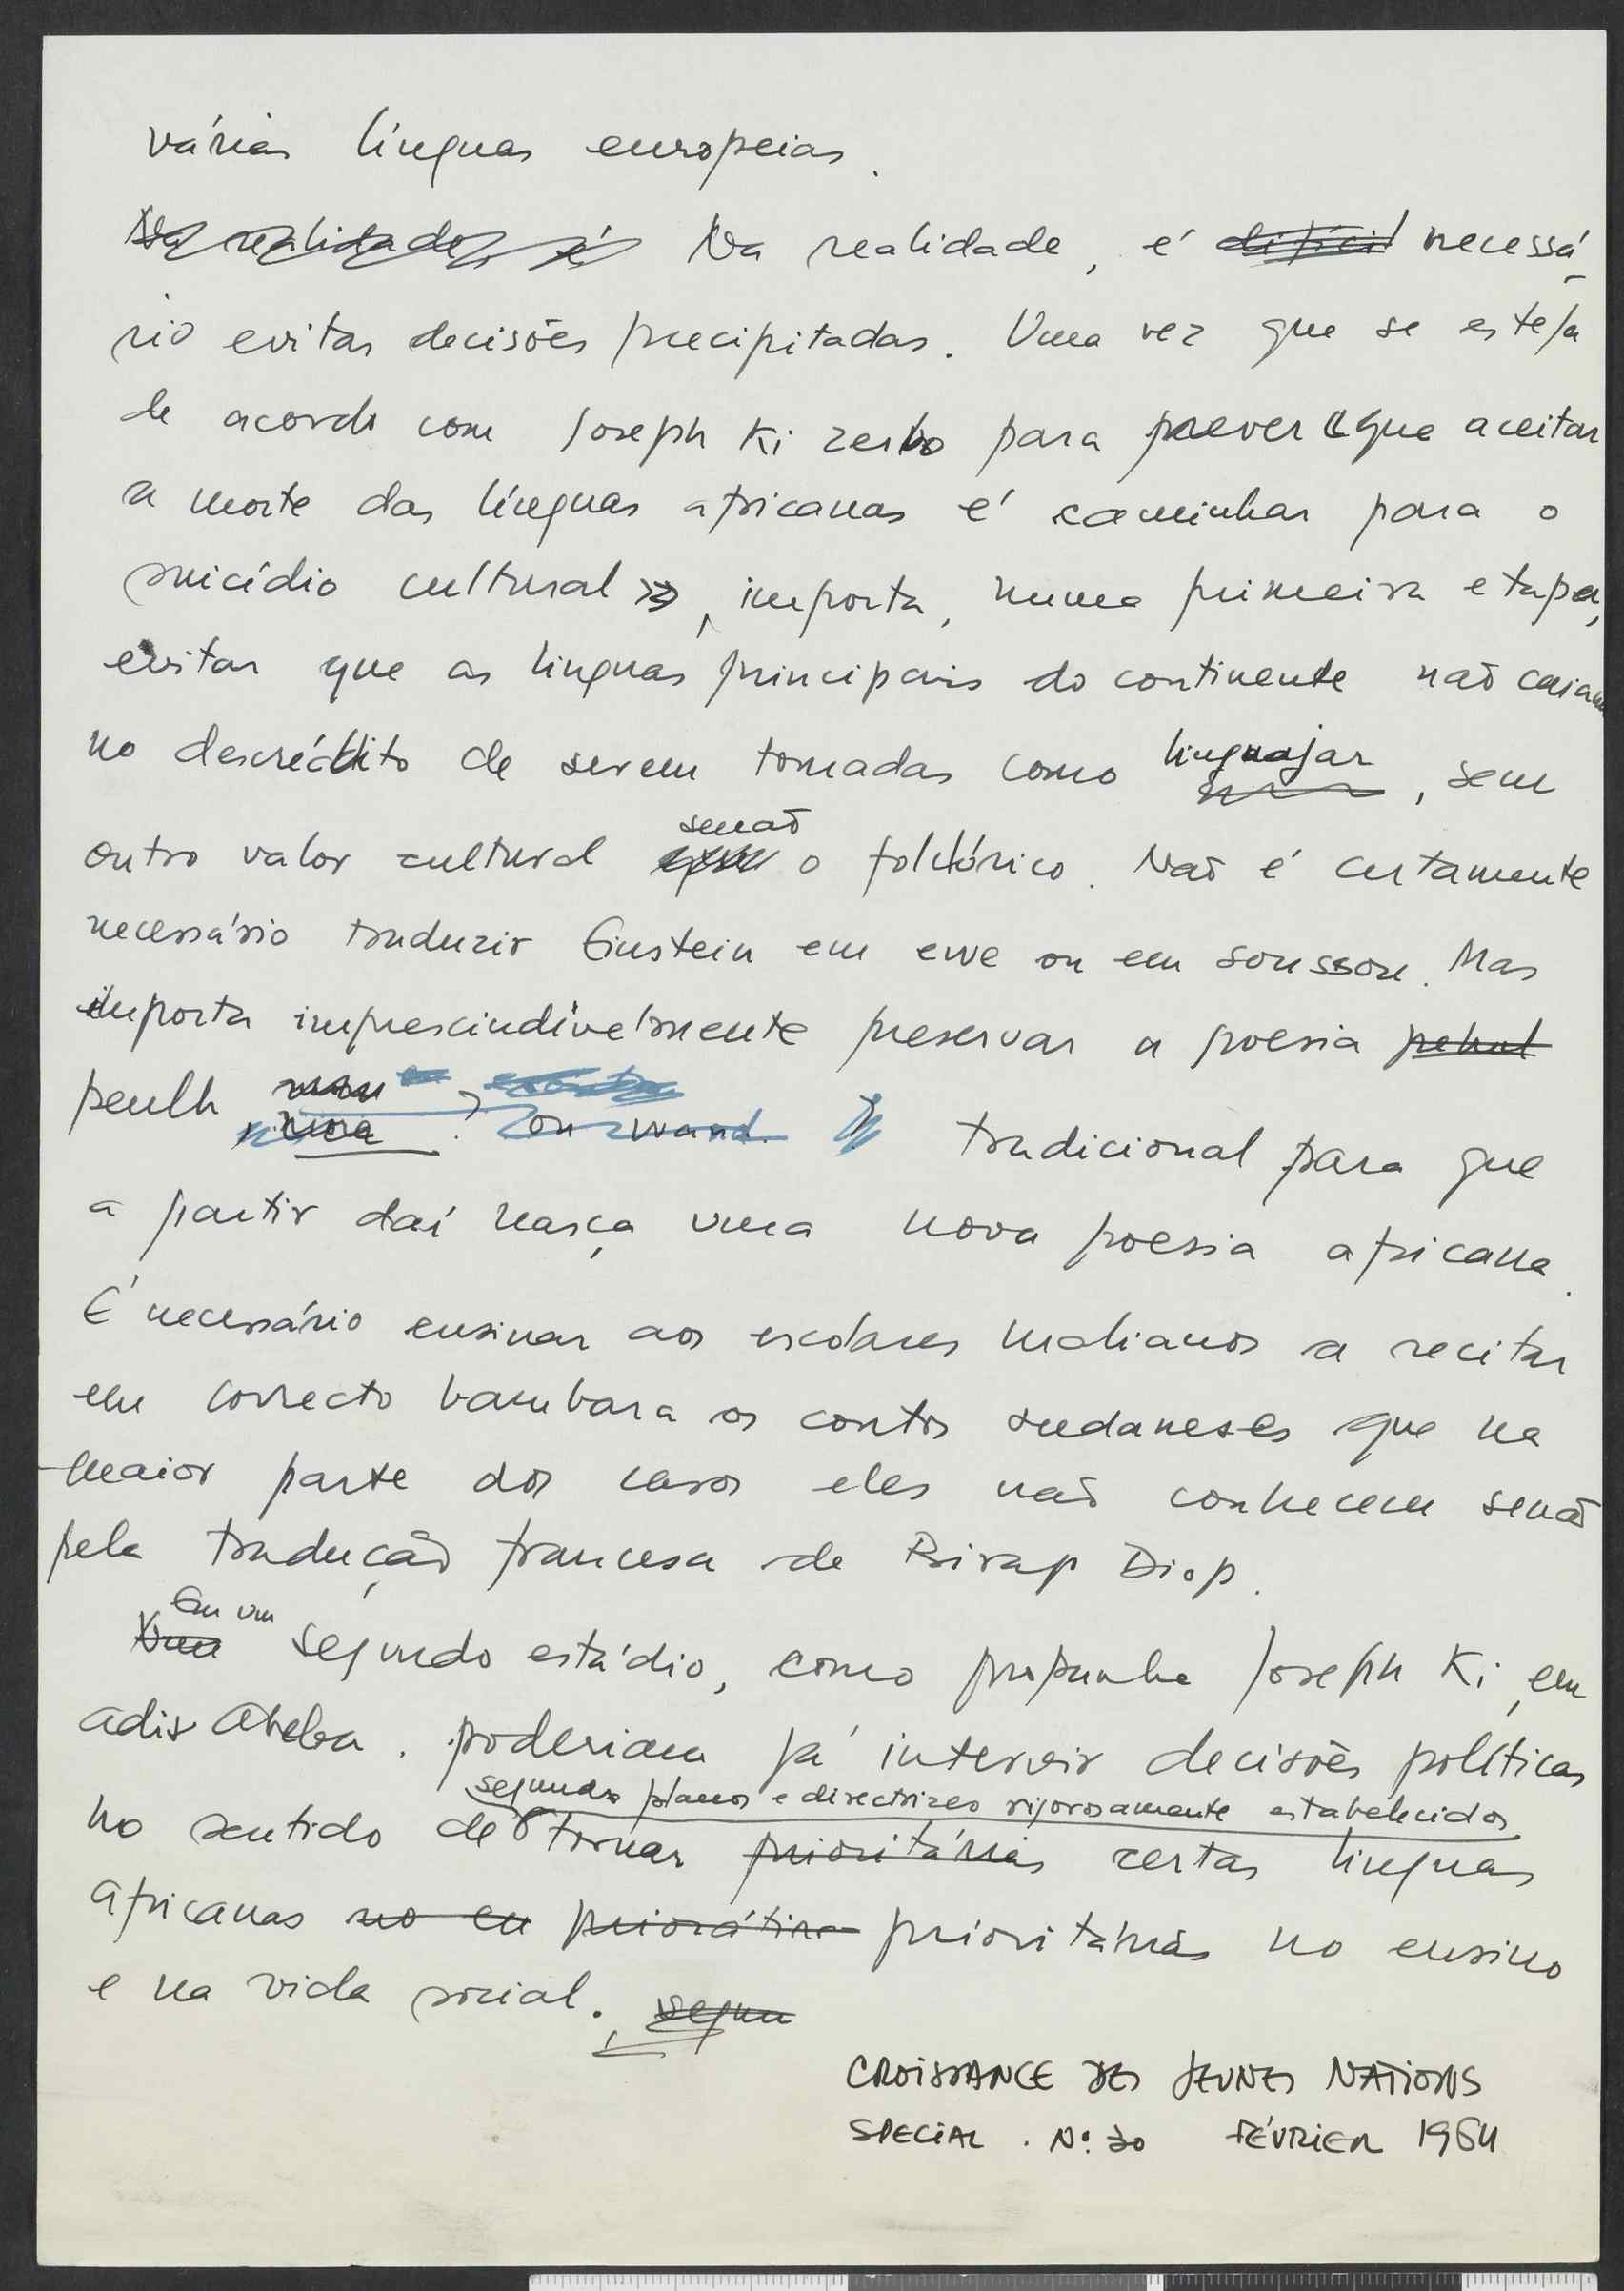 várias línguas europeias.
Na realidade, é Na realidade, é difícil necessá-
rio evitar decisões precipitadas. Uma vez que se esteja
de acordo com Joseph Ki zerbo para prever «que aceitar
a morte das línguas africanas é caminhar para o
suicídio cultural», importa, numa primeira etapa,
evitar que as linguas principais do continente não caiam
no descrédito de serem tomadas como linguajar, sem
outro valor cultural senão o folclórico. Não é certamente
necessário traduzir Einstein em ewe ou em soussou. Mas
importa imprescindívelmente preservar a poesia
peulh tradicional para que
a partir daí nasça uma nova poesia africana.
É necessário ensinar aos escolares malianos a recitar
em correcto bambara os contos sudaneses que na
maior parte dos casos eles não conhecem senão
pela tradução francesa de Birap Diop.
Em um segundo estádio, como propunha Joseph Ki, em
adis Abeba. poderiam já intervir decisões políticas
segundo planos e directrizes rigorosamente estabelecidos
no sentido de tornar prioritárias certas linguas
africanas no en prioritárias no ensino
e na vida social. segun
CROISSANCE DES JEUNES NATIONS
SPECIAL . Nº 30 FÉVRIER 1964